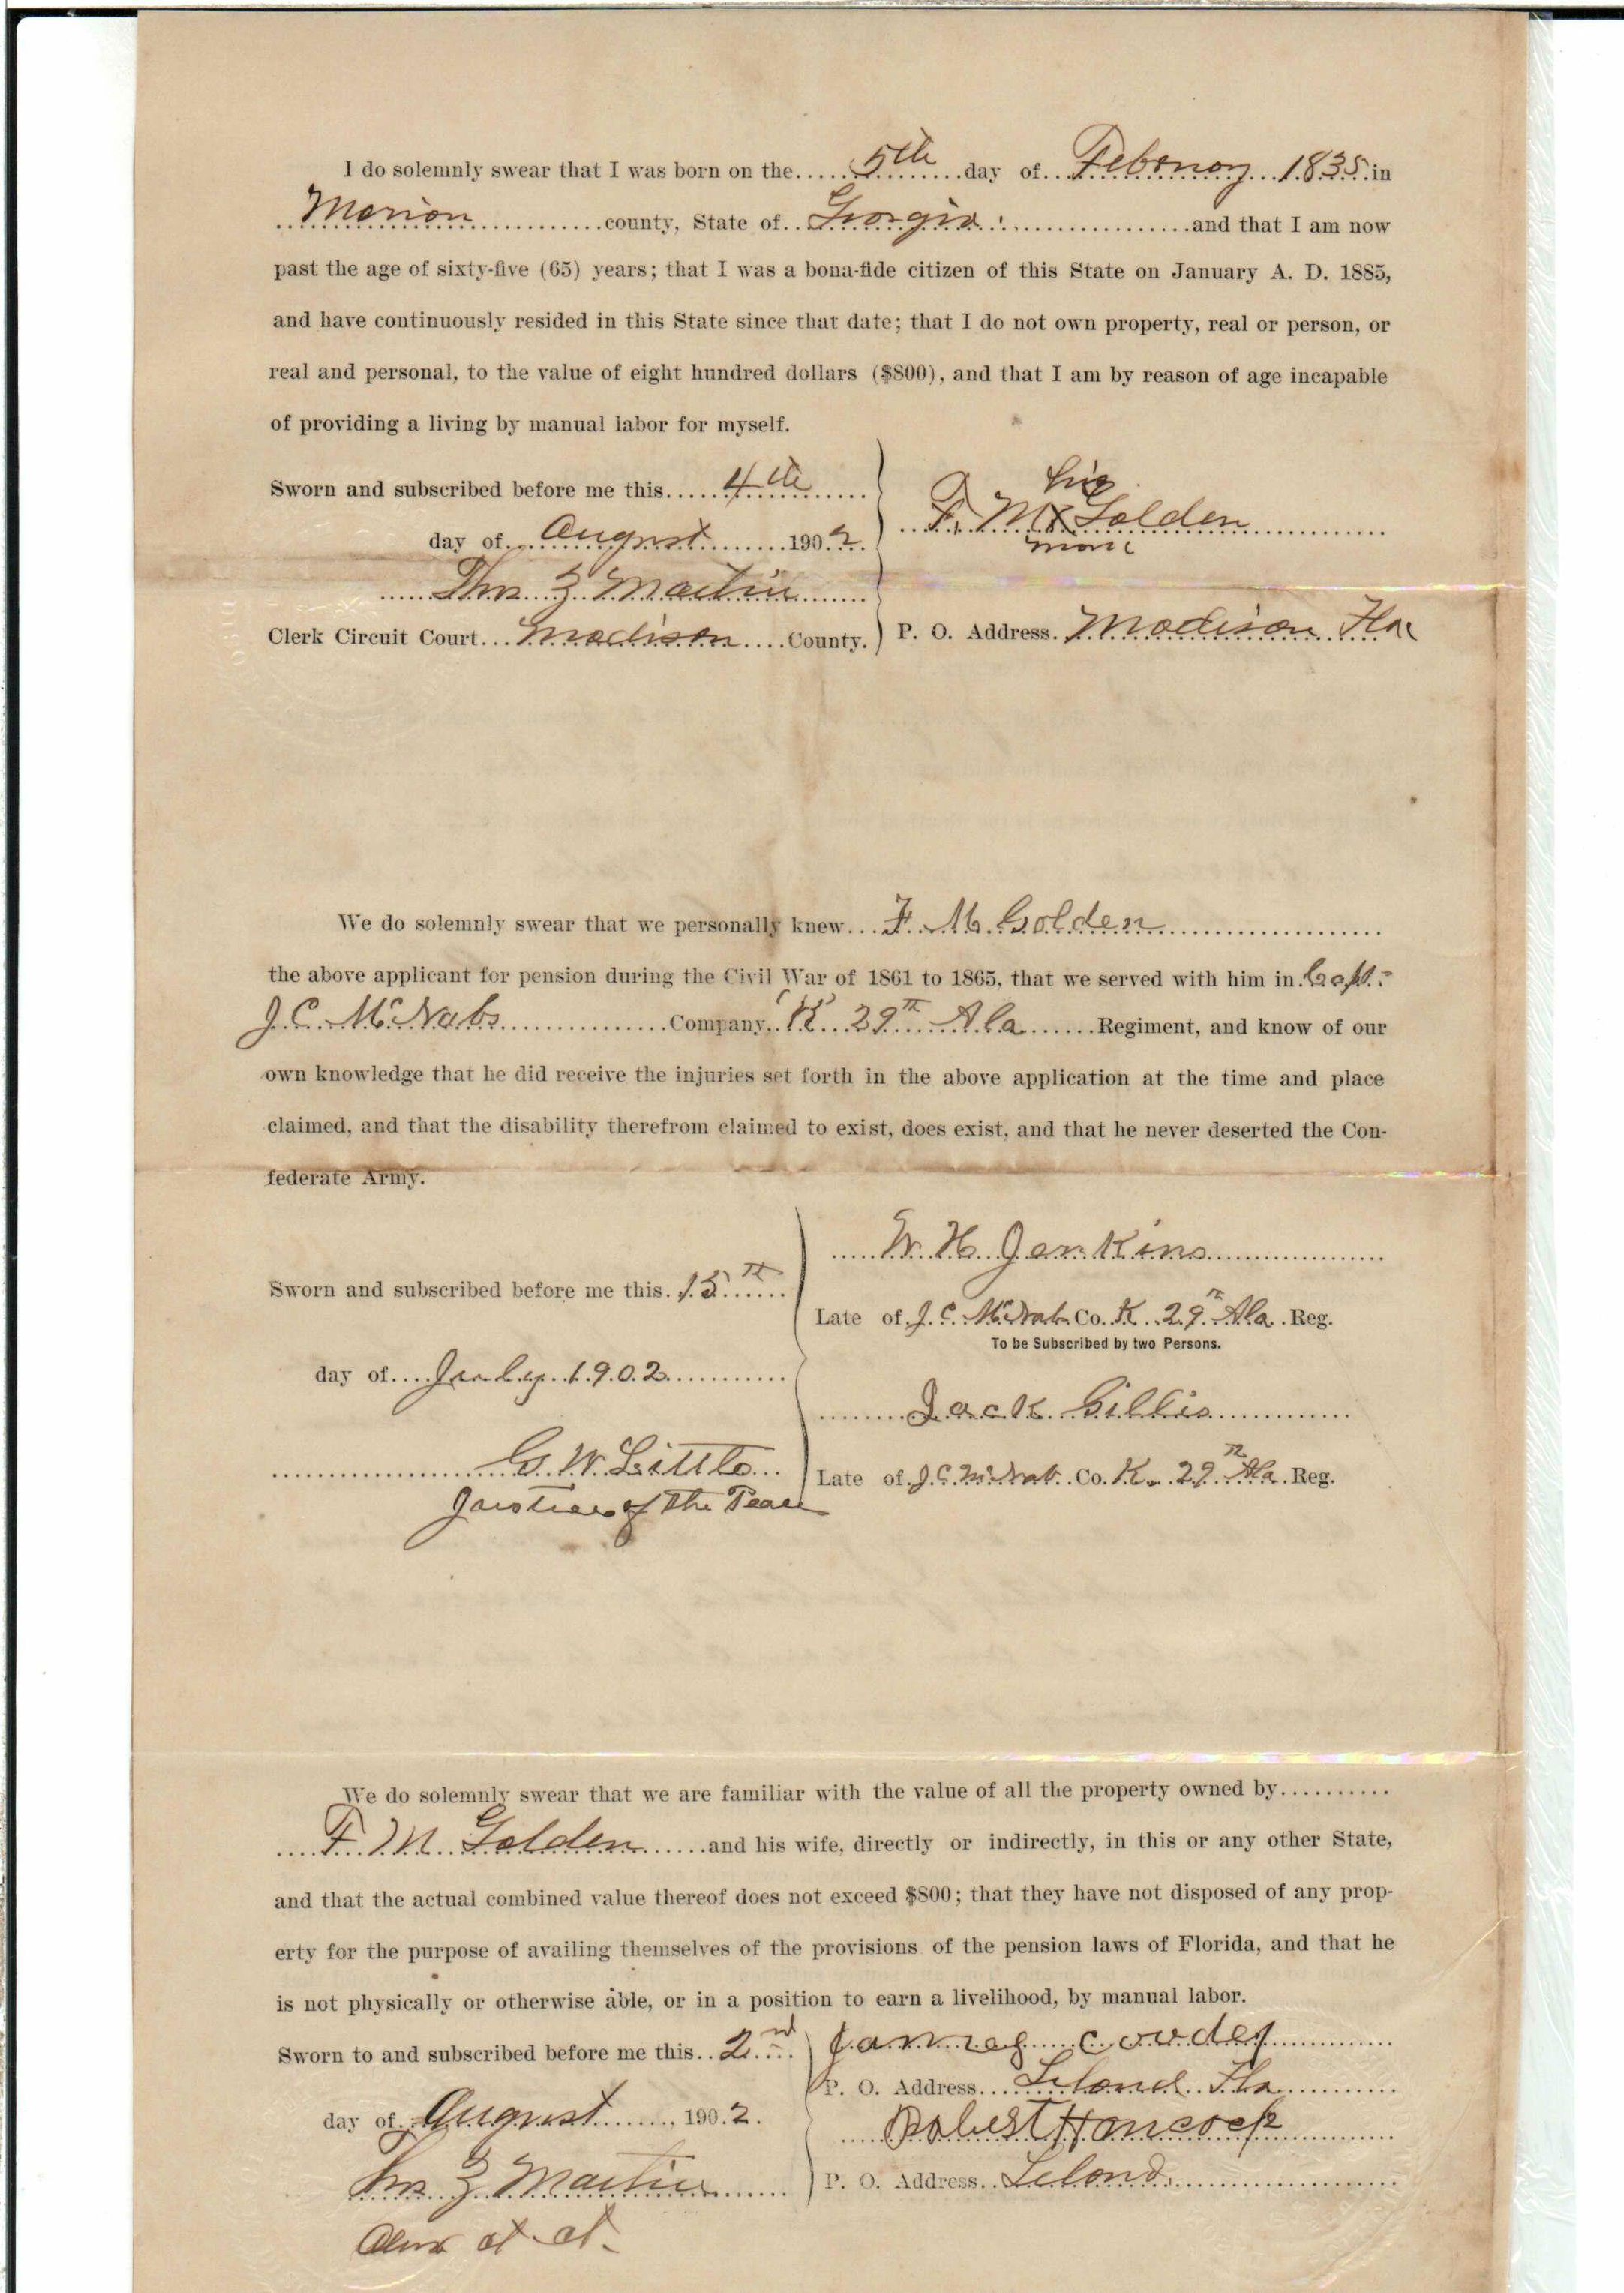 I do solemnly swear that I was born on the.....5th.......day of...Febuary...1835.in
Marion..............county, State of..Georgia:..................and that I am now
past the age of sixty-five (65) years; that I was a bona-fide citizen of this State on January A. D. 1885,
and have continuously resided in this State since that date; that I do not own property, real or person, or
real and personal, to the value of eight hundred dollars ($800), and that I am by reason of age incapable
of providing a living by manual labor for myself.
Sworn and subscribed before me this.....4th......
day of...August.......1902.
his
F. M X Golden
mark
Thos Z Martin
Clerk Circuit Court...Madison....County.
P. O. Address. Madison Fla
We do solemnly swear that we personally knew...F. M. Golden
the above applicant for pension during the Civil War of 1861 to 1865, that we served with him in.Capt.
J. C. McNabs................Company, "K" 29th Ala......Regiment, and know of our
own knowledge that he did receive the injuries set forth in the above application at the time and place
claimed, and that the disability therefrom claimed to exist, does exist, and that he never deserted the Con-
federate Army.
W. H. Jenkins
Sworn and subscribed before me this. 15th
Late of. J. C. McNab. Co. K. 29th Ala. Reg.
To be Subscribed by two Persons.
day of....July 1902
Jack Gillis
G. W. Little
Late of. J. C. McNab. Co. K. 29th Ala. Reg.
Justice of the Peace
We do solemnly swear that we are familiar with the value of all the property owned by..........
F. M. Golden......and his wife, directly or indirectly, in this or any other State,
and that the actual combined value thereof does not exceed $800; that they have not disposed of any prop-
erty for the purpose of availing themselves of the provisions of the pension laws of Florida, and that he
is not physically or otherwise able, or in a position to earn a livelihood, by manual labor.
Sworn to and subscribed before me this..2nd
James
P. O. Address....Leland Fla
day of. August......., 1902.
Robert Hancock
Thos Z Martin
P. O. Address..Leland